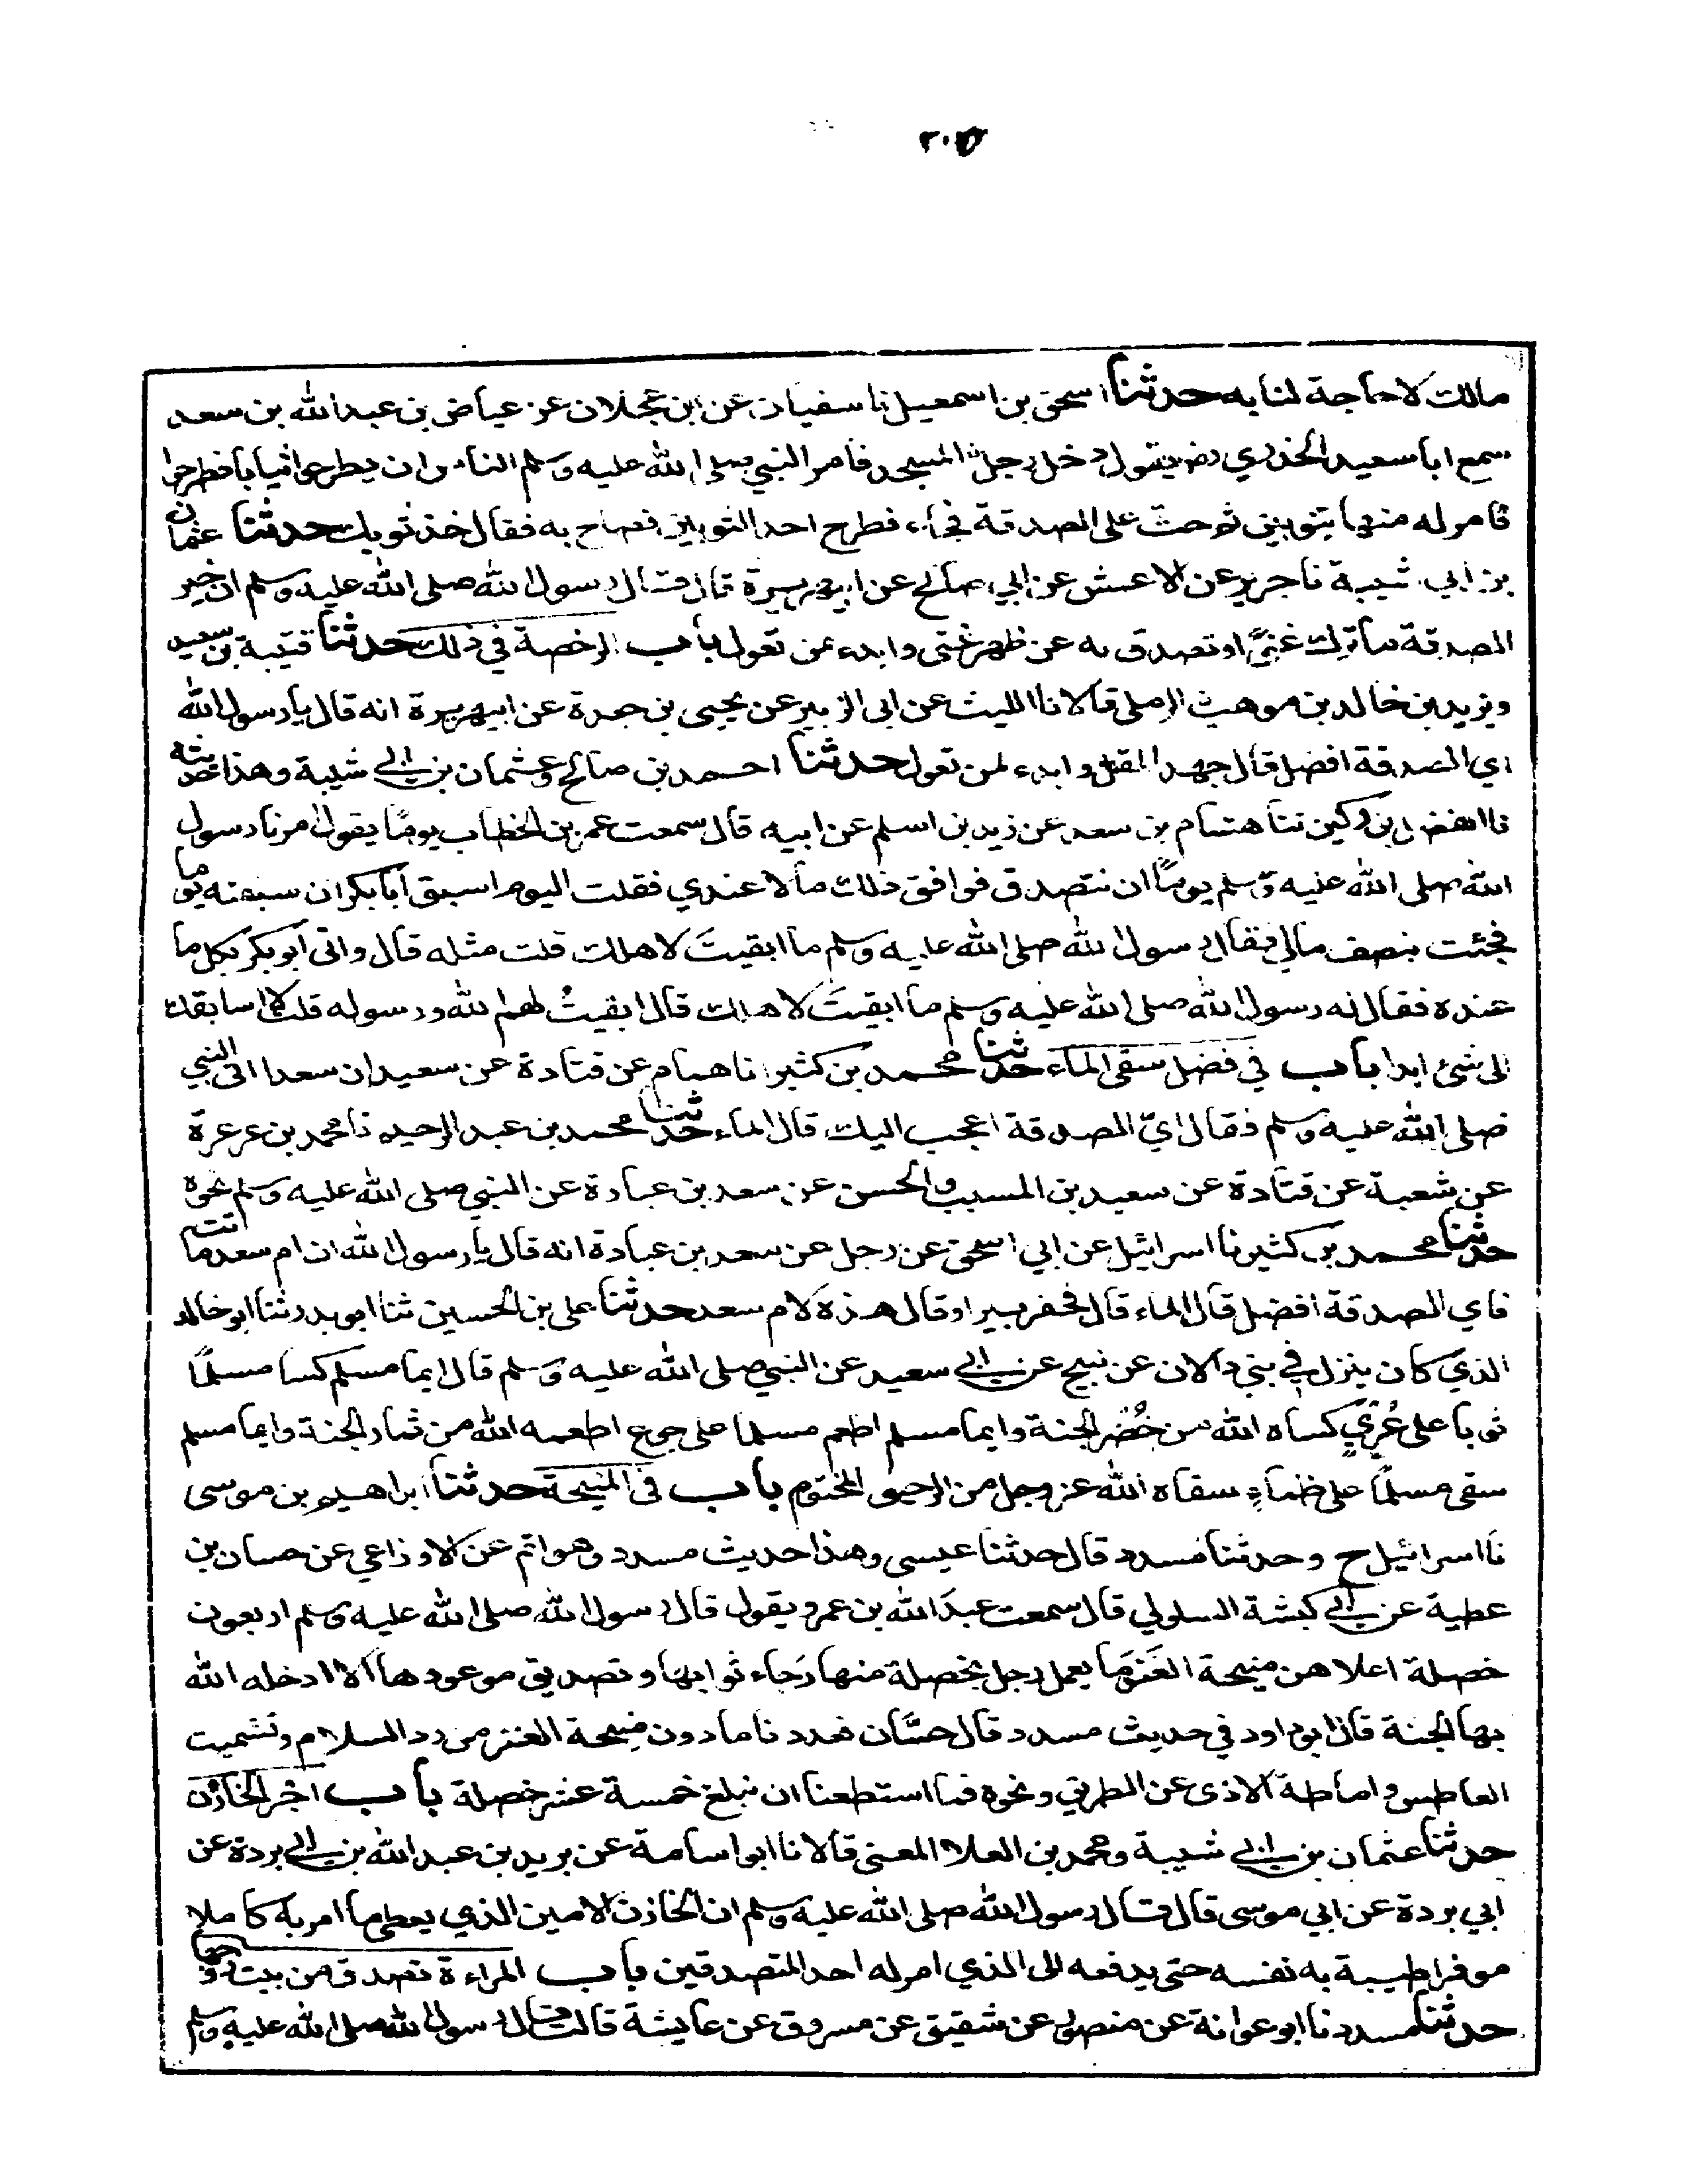 ٢٠٥
مالك لا حاجة لنا به حدثنا اسحق بن اسمعيل نا سفيان عن ابن عجلان عن عياض بن عبدالله بن سعد
سمع ابا سعيد الخدري رضي يقول دخل رجل المسجد فامر النبي صلى الله عليه وسلم الناس ان يطرحوا ثيابا فطرحوا
فامر له منها بثوبين ثم حث على الصدقة فجاء فطرح احد الثوبين فصاح به فقال خذ ثوبك حدثنا عثمان
بن ابي شيبة نا جرير عن الاعمش عن ابي صالح عن ابي هريرة قال قال رسول الله صلى الله عليه وسلم ان خير
الصدقة ما ترك غنىً او تصدق به عن ظهر غنى وابدء بمن تعول باب الرخصة في ذلك حدثنا قتيبة بن سعيد
ويزيد بن خالد بن موهب الرملي قالا نا الليث عن ابي الزبير عن يحيى بن جعدة عن ابي هريرة انه قال يا رسول الله
اي الصدقة افضل قال جهد المقل وابدء لمن تعول حدثنا احمد بن صالح وعثمان بن ابي شيبة وهذا حديثه
نا الفضل بن دكين ثنا هشام بن سعد عن زيد بن اسلم عن ابيه قال سمعت عمر بن الخطاب يومًا يقول امرنا رسول
الله صلى الله عليه وسلم يومًا ان نتصدق فوافق ذلك مالا عندي فقلت اليوم اسبق ابا بكر ان سبقته يوما
فجئت بنصف مالي فقال رسول الله صلى الله عليه وسلم ما ابقيتَ لاهلك قلت مثله قال واتى ابو بكر بكل ما
عنده فقال له رسول الله صلى الله عليه وسلم ما ابقيتَ لاهلك قال ابقيتُ لهم الله ورسوله قلت لا اسابقك
الى شئ ابدا باب في فضل سقى الماء حدثنا محمد بن كثير انا همام عن قتادة عن سعيد ان سعدا اتى النبي
صلى الله عليه وسلم فقال ايّ الصدقة اعجب اليك قال الماء حدثنا محمد بن عبد الرحيم نا محمد بن عرعرة
عن شعبة عن قتادة عن سعيد بن المسيب والحسن عن سعد بن عبادة عن النبي صلى الله عليه وسلم نحوه
حدثنا محمد بن كثير نا اسرائيل عن ابي اسحق عن رجل عن سعد بن عبادة انه قال يا رسول الله ان ام سعد ماتت
فاي الصدقة افضل قال الماء قال فحفر بيرا وقال هذه لام سعد حدثنا علي بن الحسين ثنا ابو بدر ثنا ابو خالد
الذي كان ينزل في بني دالان عن نبيح عن ابي سعيد عن النبي صلى الله عليه وسلم قال ايما مسلم كسا مسلمًا
ثوبا على عُرْيٍ كساه الله من خُضْر الجنة وايما مسلم اطعم مسلما على جوع اطعمه الله من ثمار الجنة وايما مسلم
سقى مسلمًا على ظماءٍ سقاه الله عز وجل من الرحيق المختوم باب في المنيحة حدثنا ابراهيم بن موسى
نا اسرائيل ح وحدثنا مسدد قال حدثنا عيسى وهذا حديث مسدد وهو اتم عن الاوزاعي عن حسان بن
عطية عن ابي كبشة السلولي قال سمعت عبد الله بن عمرو يقول قال رسول الله صلى الله عليه وسلم اربعون
خصلة اعلاهن منيحة العنز ما يعمل رجل بخصلة منها رجاء ثوابها وتصديق موعودها الا ادخله الله
بها الجنة قال ابو داود في حديث مسدد قال حسّان فعددنا ما دون منيحة العنز من رد السلام وتشميت
العاطس واماطة الاذى عن الطريق ونحوه فما استطعنا ان نبلغ خمسة عشر خصلة باب اجر الخازن
حدثنا عثمان بن ابي شيبة ومحمد بن العلا المعنى قالا نا ابو اسامة عن بريد بن عبد الله بن ابي بردة عن
ابي بردة عن ابي موسى قال قال رسول الله صلى الله عليه وسلم ان الخازن الامين الذي يعطي ما امر به كاملا
موفرا طيبة به نفسه حتى يدفعه الى الذي امر له احد المتصدقين باب المراءة تصدق من بيت زوجها
حدثنا مسدد نا ابو عوانة عن منصور عن شقيق عن مسروق عن عايشة قالت قال رسول الله صلى الله عليه وسلم